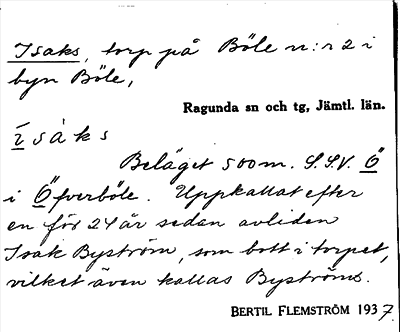 Isaks, torp på Böle n:r 2 i
byn Böle,
Ragunda sn och tg, Jämtl. län.
ī s à k s
Beläget 500 m. S.S.V. Ö
i Öfverböle. Uppkallat efter
en för 24 år sedan avliden
Isak Byström, som bott i torpet,
vilket även kallas Byströms.
BERTIL FLEMSTRÖM 1937.